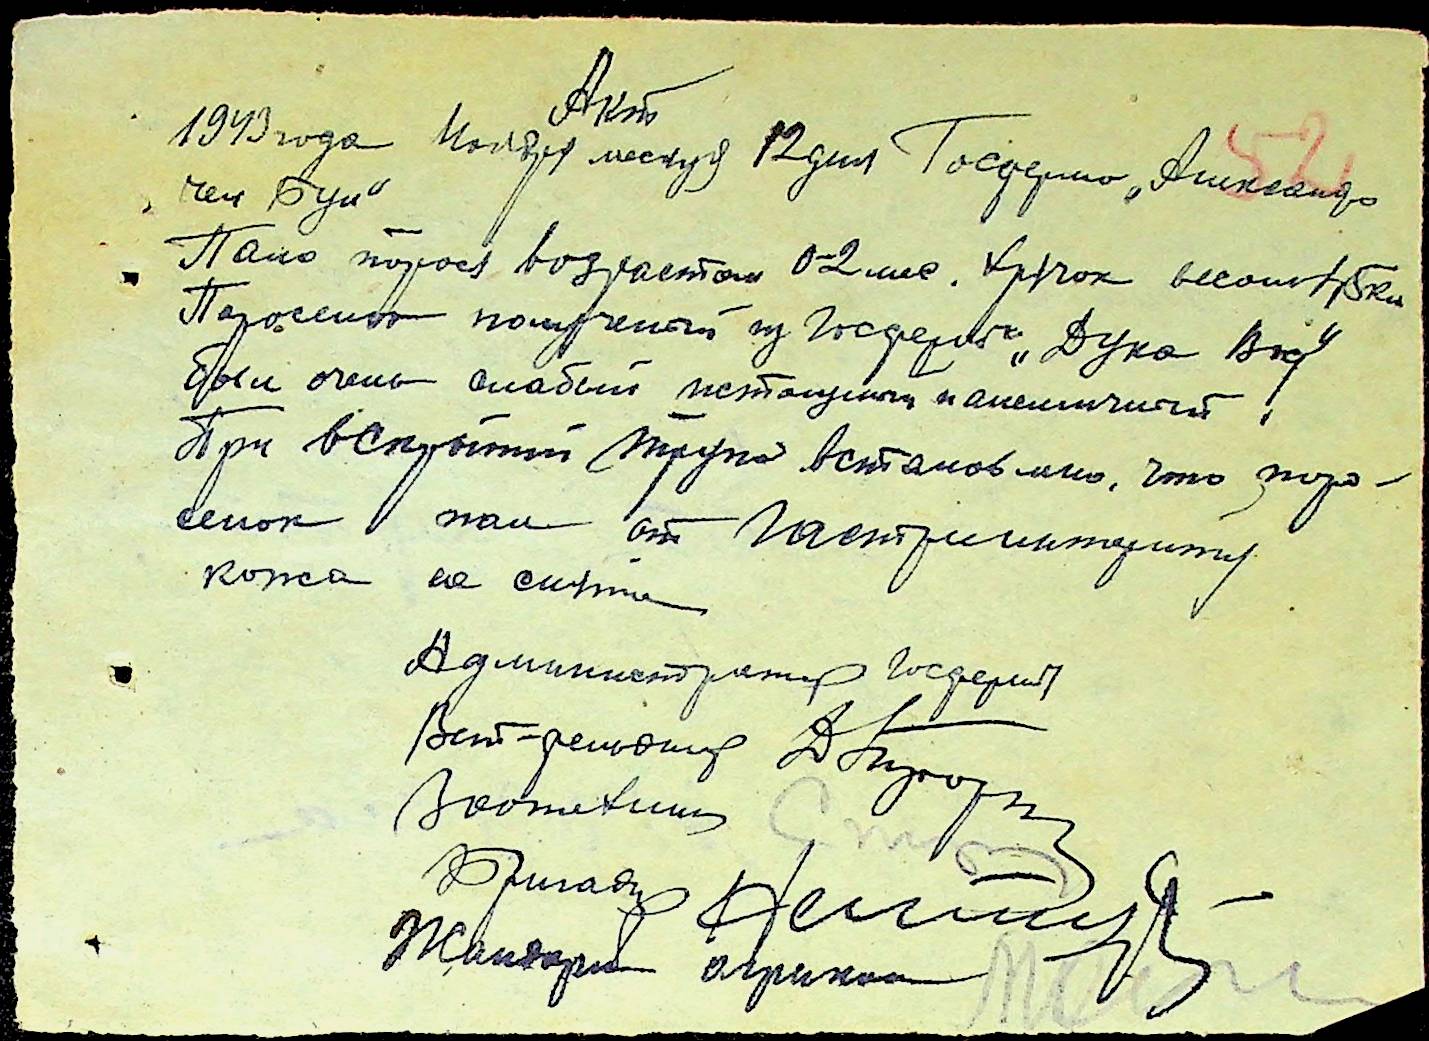 Акт
52
1943 года Ноября месяця 12 дня Госферма „Александр
чел Бун“
Пало порося возрастом 0-2 мес. хрячок весом 4,5 кил
Поросенок полученый из Госфермы „Дука Водэ“
был очень слабый истощеный анемичный.
При вскрытий трупа встановлено, что поро-
сенок пал от Гастроэнтерита
кожа не снята
Администратор Госфермы
Вет-фельдшер
Зоотехник
Бригадир
Жандарм агрикол